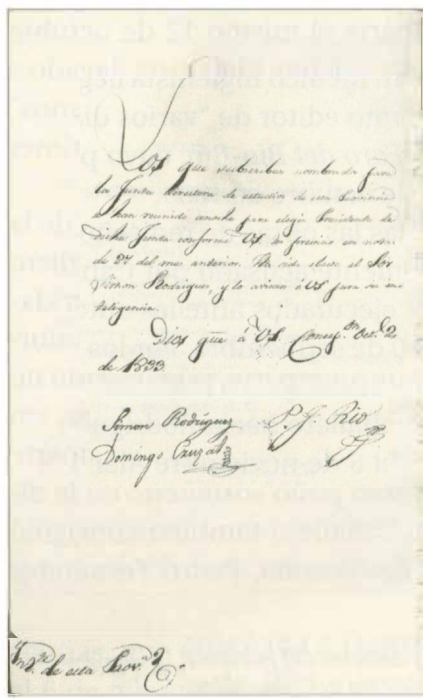 Los que subscriben nombrados para
la Junta directora de estudios de esta Provincia
se han reunido anoche para elegir Presidente de
dicha Junta conforme US. lo previno en nota
de 27 del mes anterior. Ha sido electo el Sor.
Simon Rodriguez, y lo avisan á US para su in
teligencia.
Dios gue. á US. Concepn. Oct.e 2
de 1833
Simon Rodríguez P. J. Rio
Domingo Cruzat
de esta Prov.a